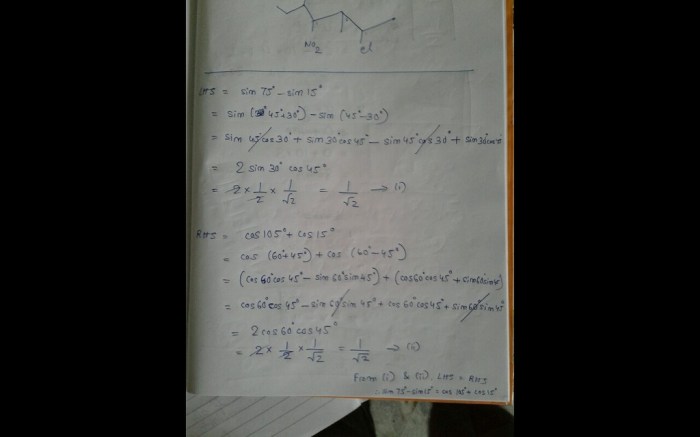 NO2 cl
LHS = sin 75° - sin 15°
= sin (45°+30°) - sin (45°-30°)
= sin 45°cos 30° + sin 30°cos 45° - sin 45°cos 30° + sin 30°cos 45°
= 2 sin 30° cos 45°
= 2 × 1/2 × 1/√2 = 1/√2 → (i)
RHS = cos 105° + cos 15°
= cos (60°+45°) + cos (60°-45°)
= (cos 60°cos 45° - sin 60°sin 45°) + (cos 60°cos 45° + sin 60°sin 45°)
= cos 60°cos 45° - sin 60°sin 45° + cos 60°cos 45° + sin 60°sin 45°
= 2 cos 60°cos 45°
= 2 × 1/2 × 1/√2 = 1/√2 → (ii)
From (i) & (ii), LHS = RHS
∴ sin 75° - sin 15° = cos 105° + cos 15°